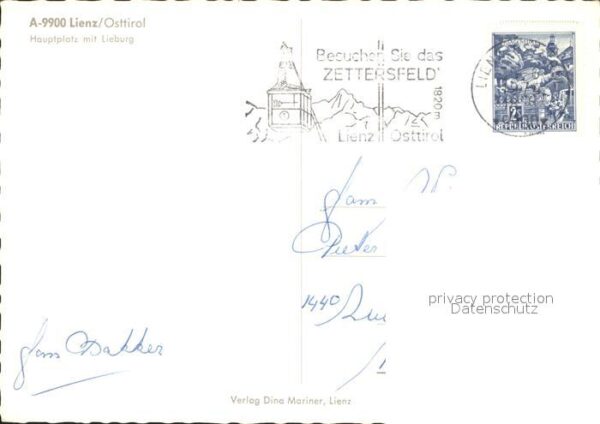 A-9900 Lienz/Osttirol
Hauptplatz mit Lieburg
Besuchen Sie das
ZETTERSFELD
1820 m
Lienz Osttirol
REPUBLIK ÖSTERREICH
Fam
Pieter
1440
privacy protection
Datenschutz
Bakker
Verlag Dina Mariner, Lienz